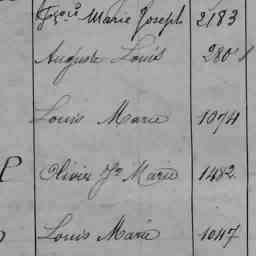 Fçois Marie Joseph 2183
Auguste Louis 280
Louis Marie 1074
P Olivier Jh Marie 1482
Louis Marie 1047